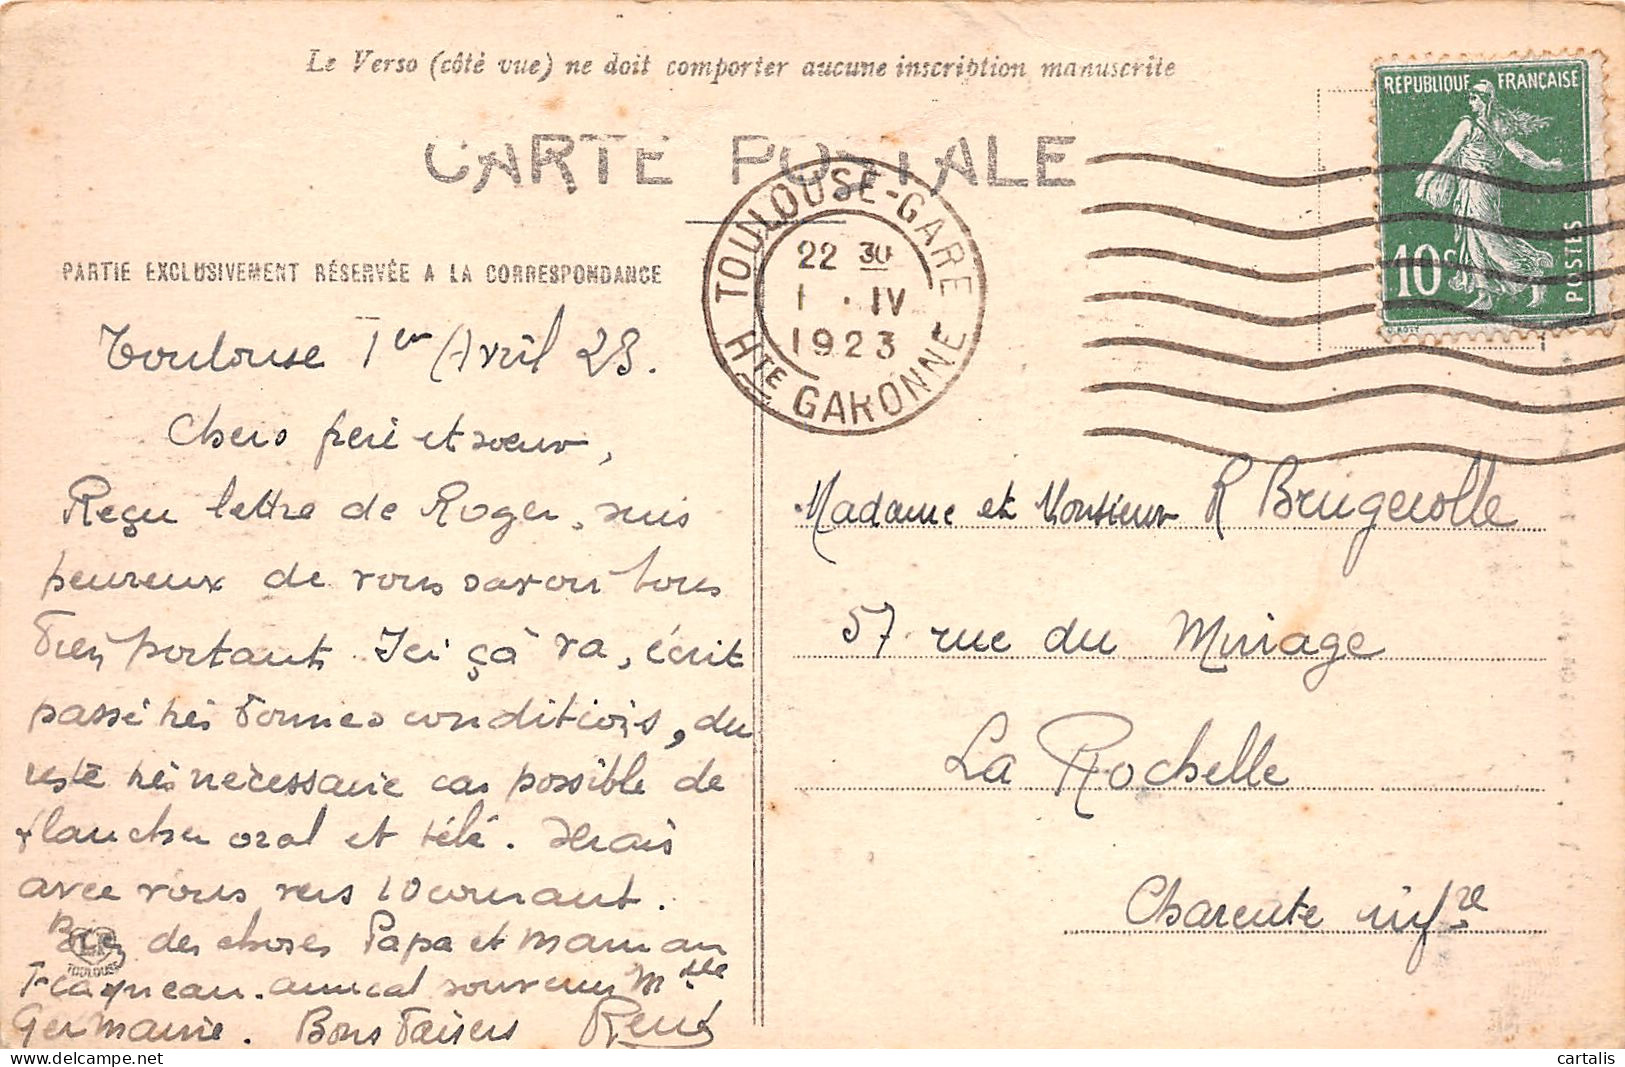 Le Verso (côté vue) ne doit comporter aucune inscription manuscrite
CARTE POSTALE
REPUBLIQUE FRANÇAISE
10c
POSTES
O. ROTY
TOULOUSE-GARE
22 30
1 · IV
1923
HTE GARONNE
PARTIE EXCLUSIVEMENT RÉSERVÉE A LA CORRESPONDANCE
Toulouse 1er Avril 23.
Chers frère et soeur,
Reçu lettre de Roger, suis
heureux de vous savoir tous
bien portants. Ici çà va, écrit
passé très bonnes conditions, du
reste très nécessaire car possible de
flancher oral et télé. Serais
avec vous vers 10 courant.
Bien des choses Papa et maman
amical souvenir Mlle
Germaine. Bons baisers René
TOULOUSE
Madame et Monsieur R Brugerolle
57 rue du Minage
La Rochelle
Charente infre
cartalis